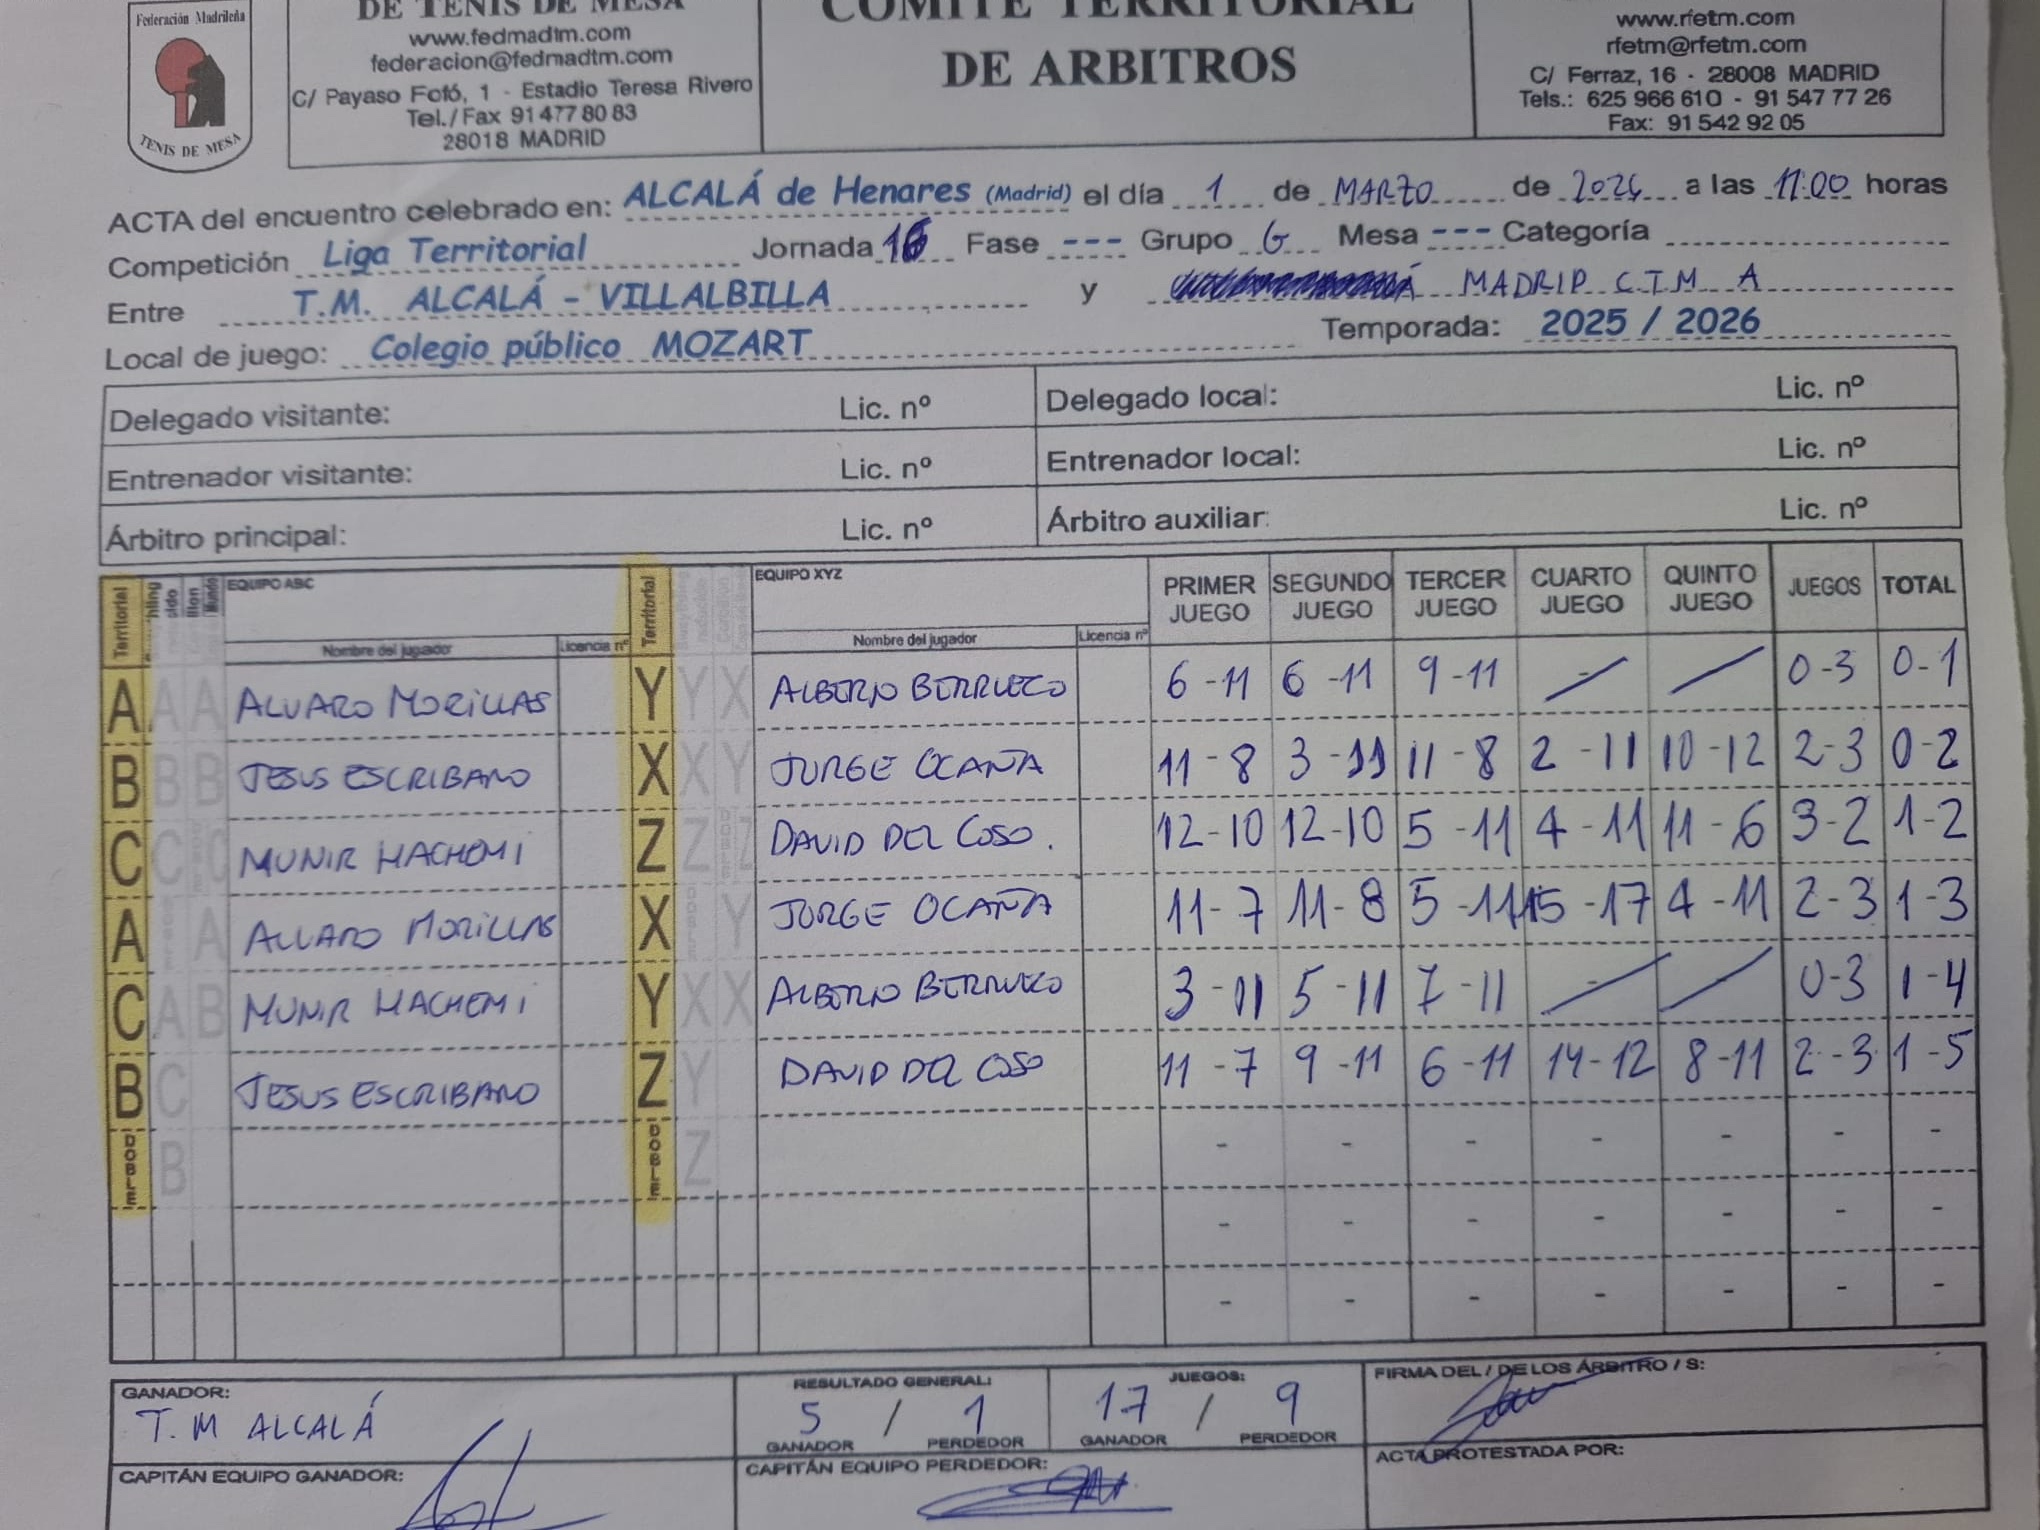 Federación Madrileña
TENIS DE MESA
DE TENIS DE MESA
www.fedmadtm.com
federacion@fedmadtm.com
C/ Payaso Fofó, 1 - Estadio Teresa Rivero
Tel./Fax 91 477 80 83
28018 MADRID
COMITÉ TERRITORIAL
DE ARBITROS
www.rfetm.com
rfetm@rfetm.com
C/ Ferraz, 16 - 28008 MADRID
Tels.: 625 966 610 - 91 547 77 26
Fax: 91 542 92 05
ACTA del encuentro celebrado en: ALCALÁ de Henares (Madrid) el día 1 de MARZO de 2026 a las 11:00 horas
Competición Liga Territorial Jornada 16 Fase --- Grupo G Mesa --- Categoría
Entre T.M. ALCALÁ - VILLALBILLA y MADRID C.T.M A
Local de juego: Colegio público MOZART Temporada: 2025 / 2026
Delegado visitante: Lic. nº Delegado local: Lic. nº
Entrenador visitante: Lic. nº Entrenador local: Lic. nº
Árbitro principal: Lic. nº Árbitro auxiliar: Lic. nº
Territorial EQUIPO ABC Territorial EQUIPO XYZ PRIMER JUEGO SEGUNDO JUEGO TERCER JUEGO CUARTO JUEGO QUINTO JUEGO JUEGOS TOTAL
Nombre del jugador Licencia nº Nombre del jugador Licencia nº
A A A ALVARO MORILLAS Y Y X ALBERTO BERRUECO 6-11 6-11 9-11 - - 0-3 0-1
B B B JESUS ESCRIBANO X X Y JORGE OCAÑA 11-8 3-11 11-8 2-11 10-12 2-3 0-2
C C C MUNIR HACHEMI Z Z Z DAVID DEL COSO. 12-10 12-10 5-11 4-11 11-6 3-2 1-2
A A ALVARO MORILLAS X Y JORGE OCAÑA 11-7 11-8 5-11 15-17 4-11 2-3 1-3
C A B MUNIR HACHEMI Y X X ALBERTO BERRUECO 3-11 5-11 7-11 - - 0-3 1-4
B C JESUS ESCRIBANO Z Y DAVID DEL COSO 11-7 9-11 6-11 14-12 8-11 2-3 1-5
DOBLE B DOBLE Z - - - - - - -
- - - - - - -
- - - - - - -
GANADOR: T.M ALCALÁ
RESULTADO GENERAL: 5 / 1
GANADOR PERDEDOR
JUEGOS: 17 / 9
GANADOR PERDEDOR
FIRMA DEL / DE LOS ÁRBITRO / S:
CAPITÁN EQUIPO GANADOR:
CAPITÁN EQUIPO PERDEDOR:
ACTA PROTESTADA POR: